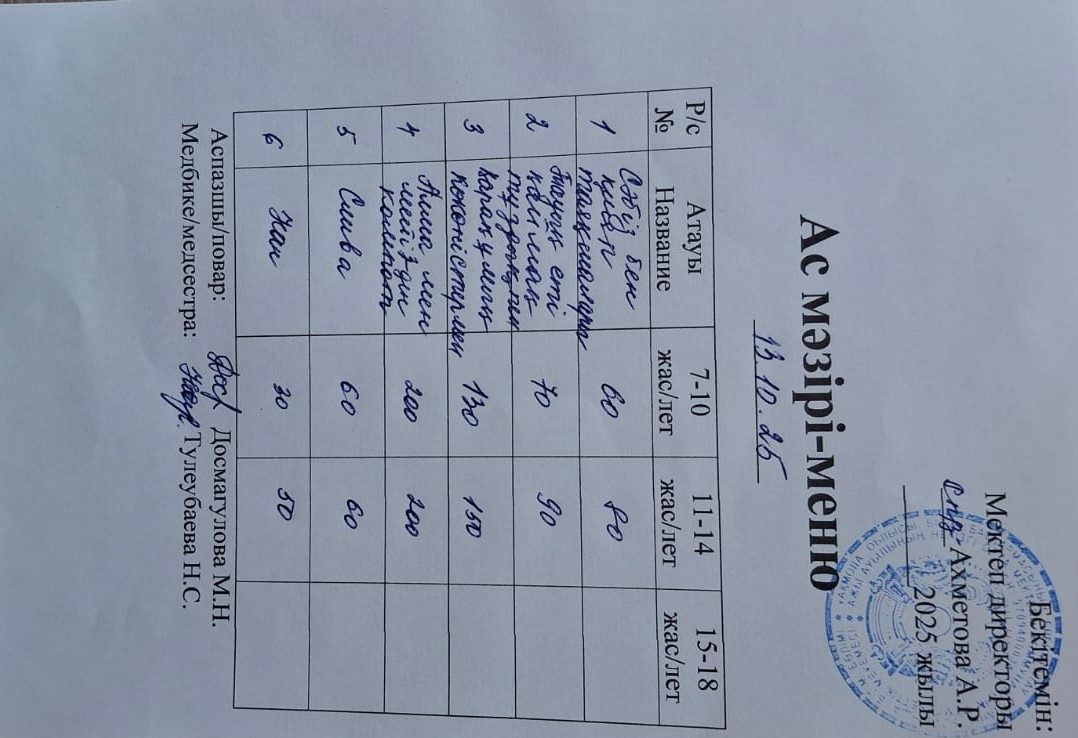 Бекітемін:
Мектеп директоры
Ахметова А.Р.
2025 жылы
Ас мәзірі-меню
13.10.25
Р/с № Атауы Название 7-10 жас/лет 11-14 жас/лет 15-18 жас/лет
1 Сәбіз бен қияр таяқшалары 60 80
2 Тауық еті қосылған 70 90
3 Қарақұмық көкөністермен 130 150
4 Алма мен мейіз компот 200 200
5 Слива 60 60
6 Нан 30 50
Аспазшы/повар: Досмагулова М.Н.
Медбике/медсестра: Тулеубаева Н.С.